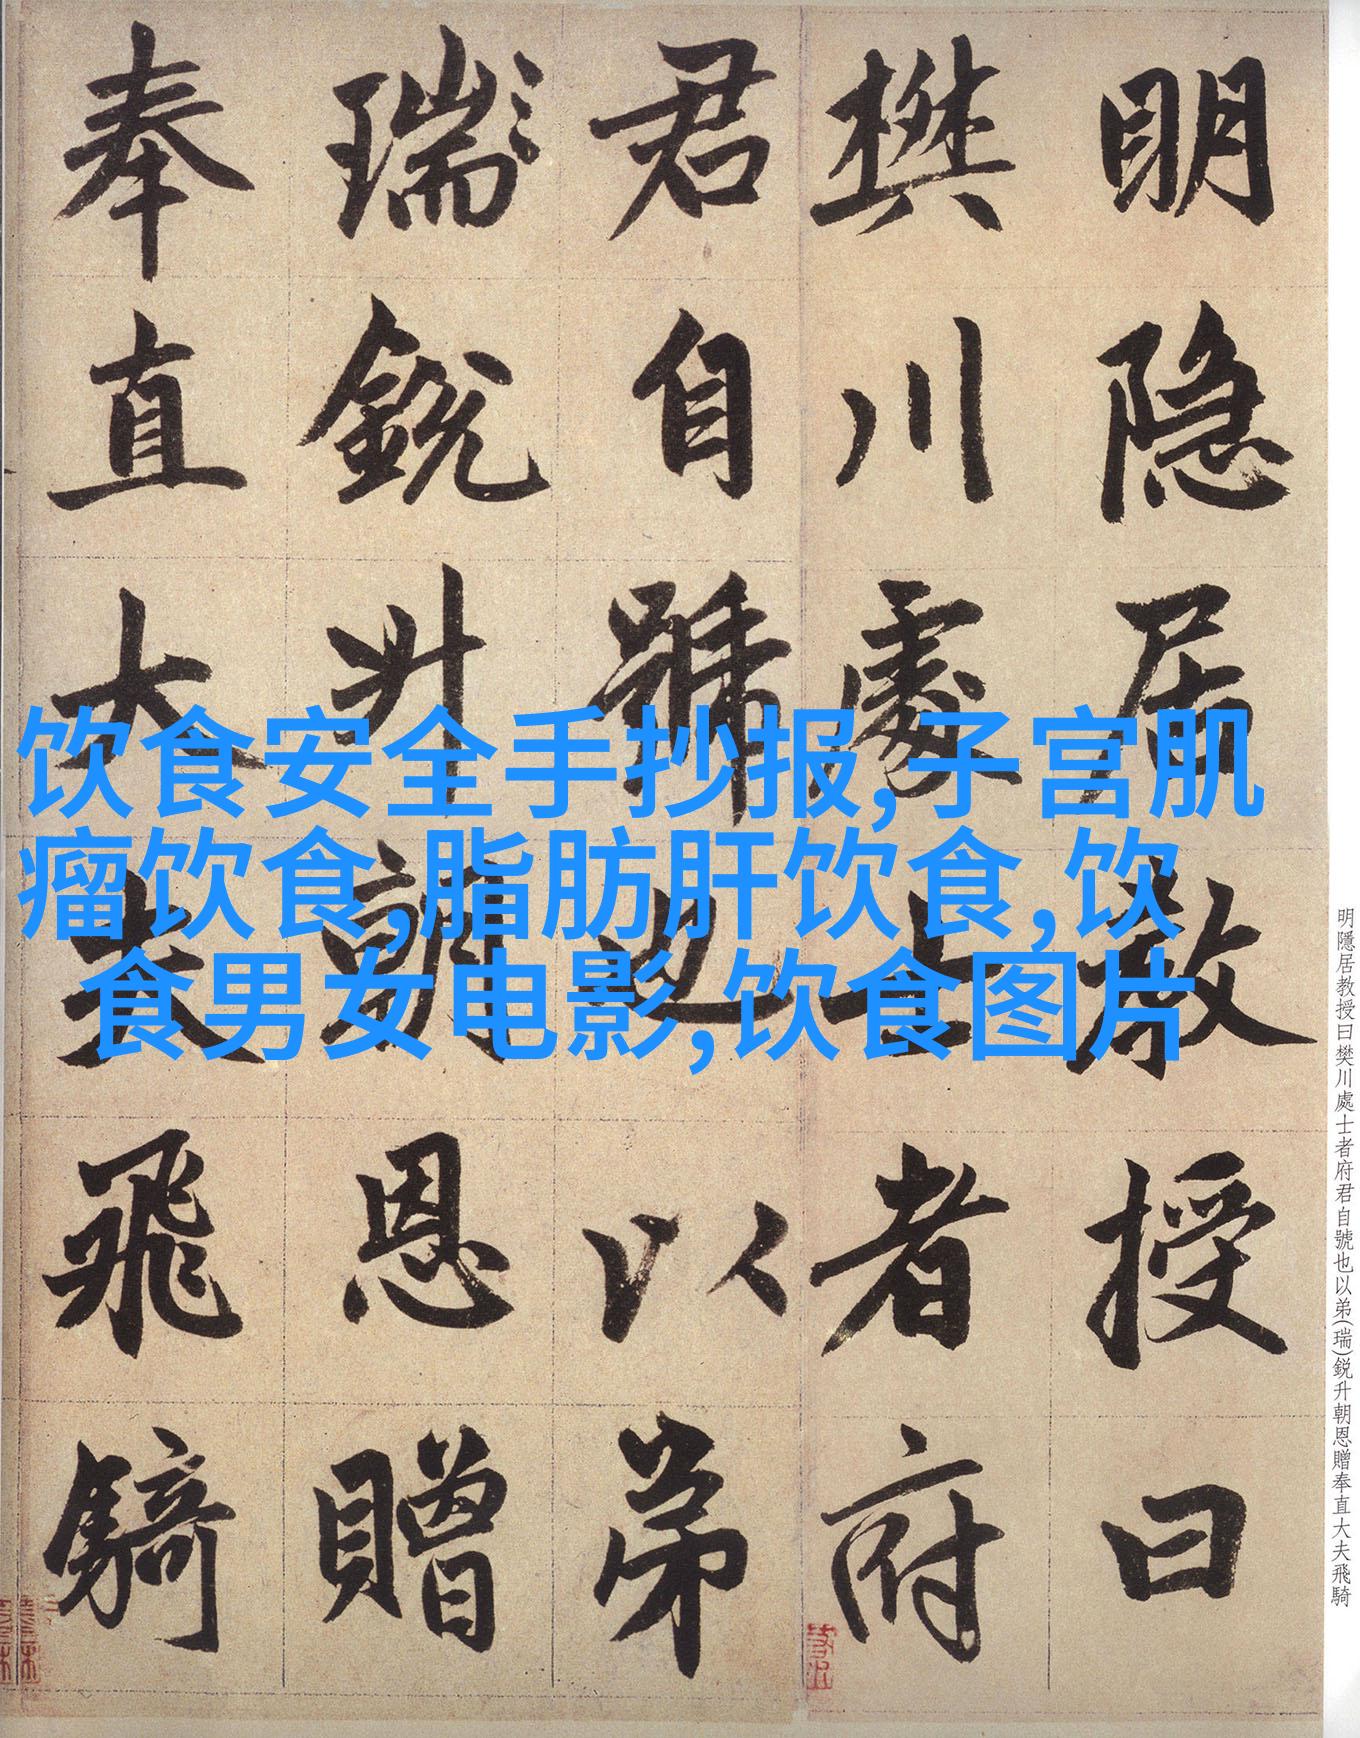 明隐居教授曰
樊川處士者府
君自號也以弟
瑞銳升朝恩贈
奉直大夫飛騎
饮食安全手抄报,子宫肌
瘤饮食,脂肪肝饮食,饮
食男女电影,饮食图片
明隱居教授曰樊川處士者府君自號也以弟(瑞)鋭升朝恩贈奉直大夫飛騎